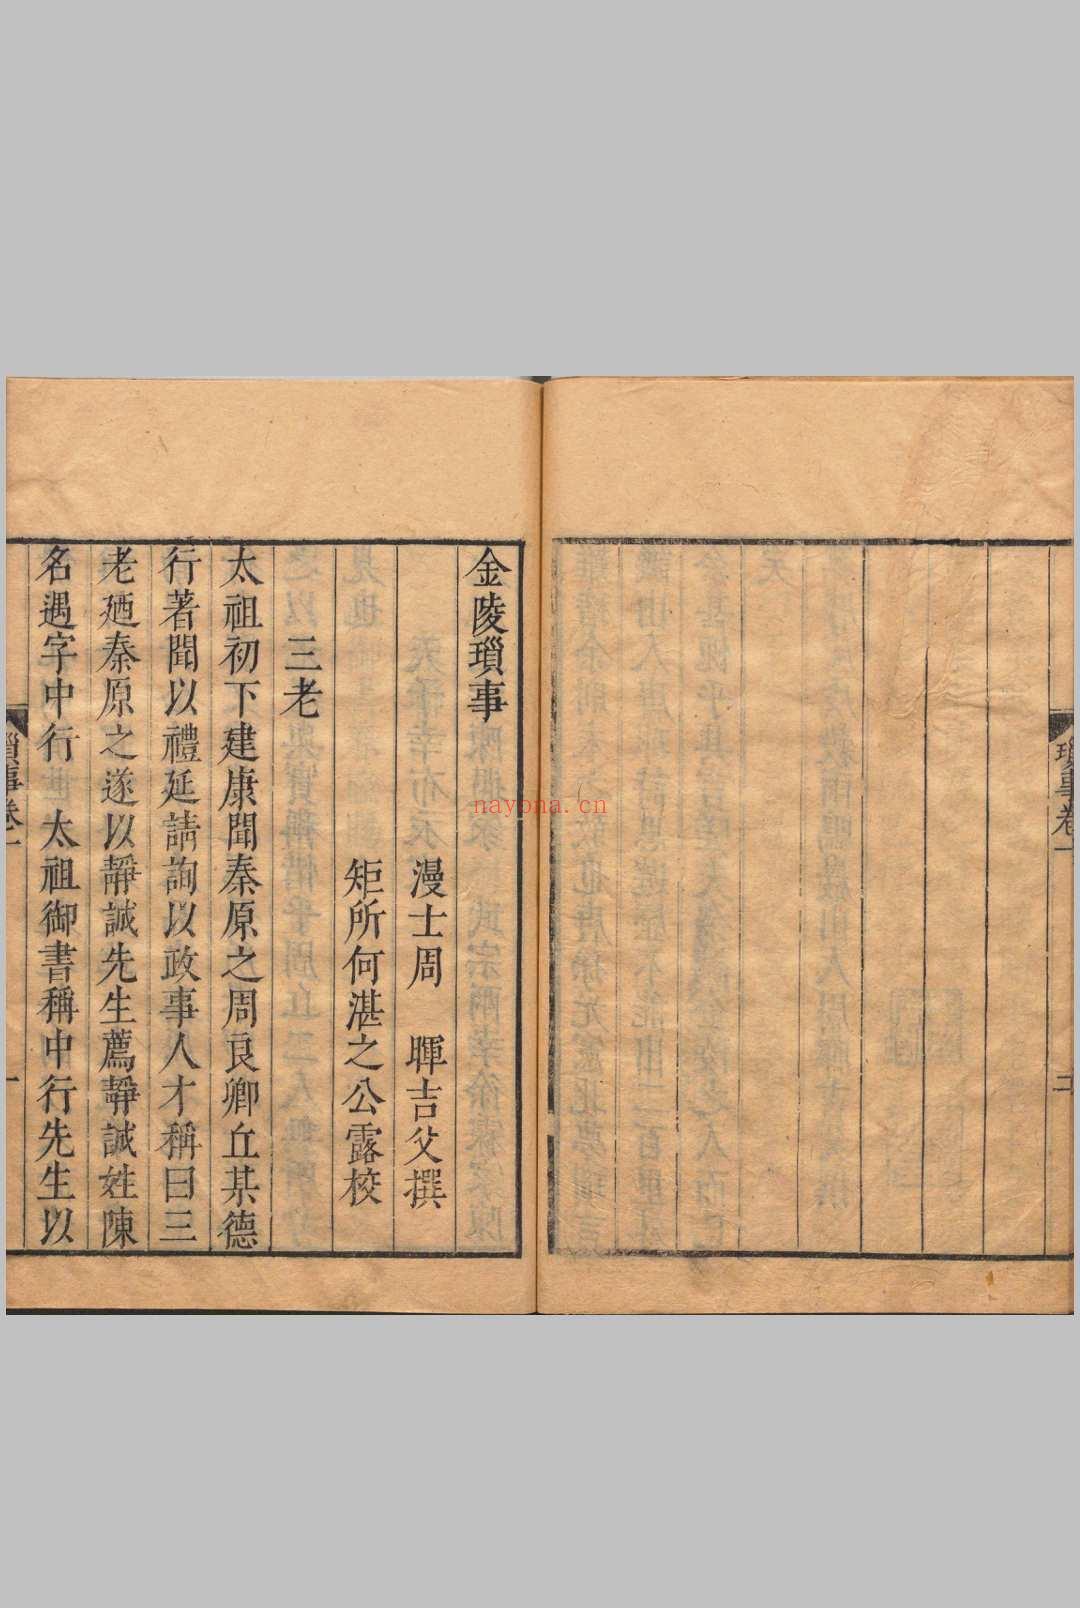 金陵瑣事
漫士周　暉吉父撰
矩所何湛之公露校
三老
太祖初下建康聞秦原之周良卿丘某德
行著聞以禮延請詢以政事人才稱曰三
老廼秦原之遂以靜誠先生薦靜誠姓陳
名遇字中行　太祖御書稱中行先生以
瑣事卷一
一
瑣事卷一
nayona.cn